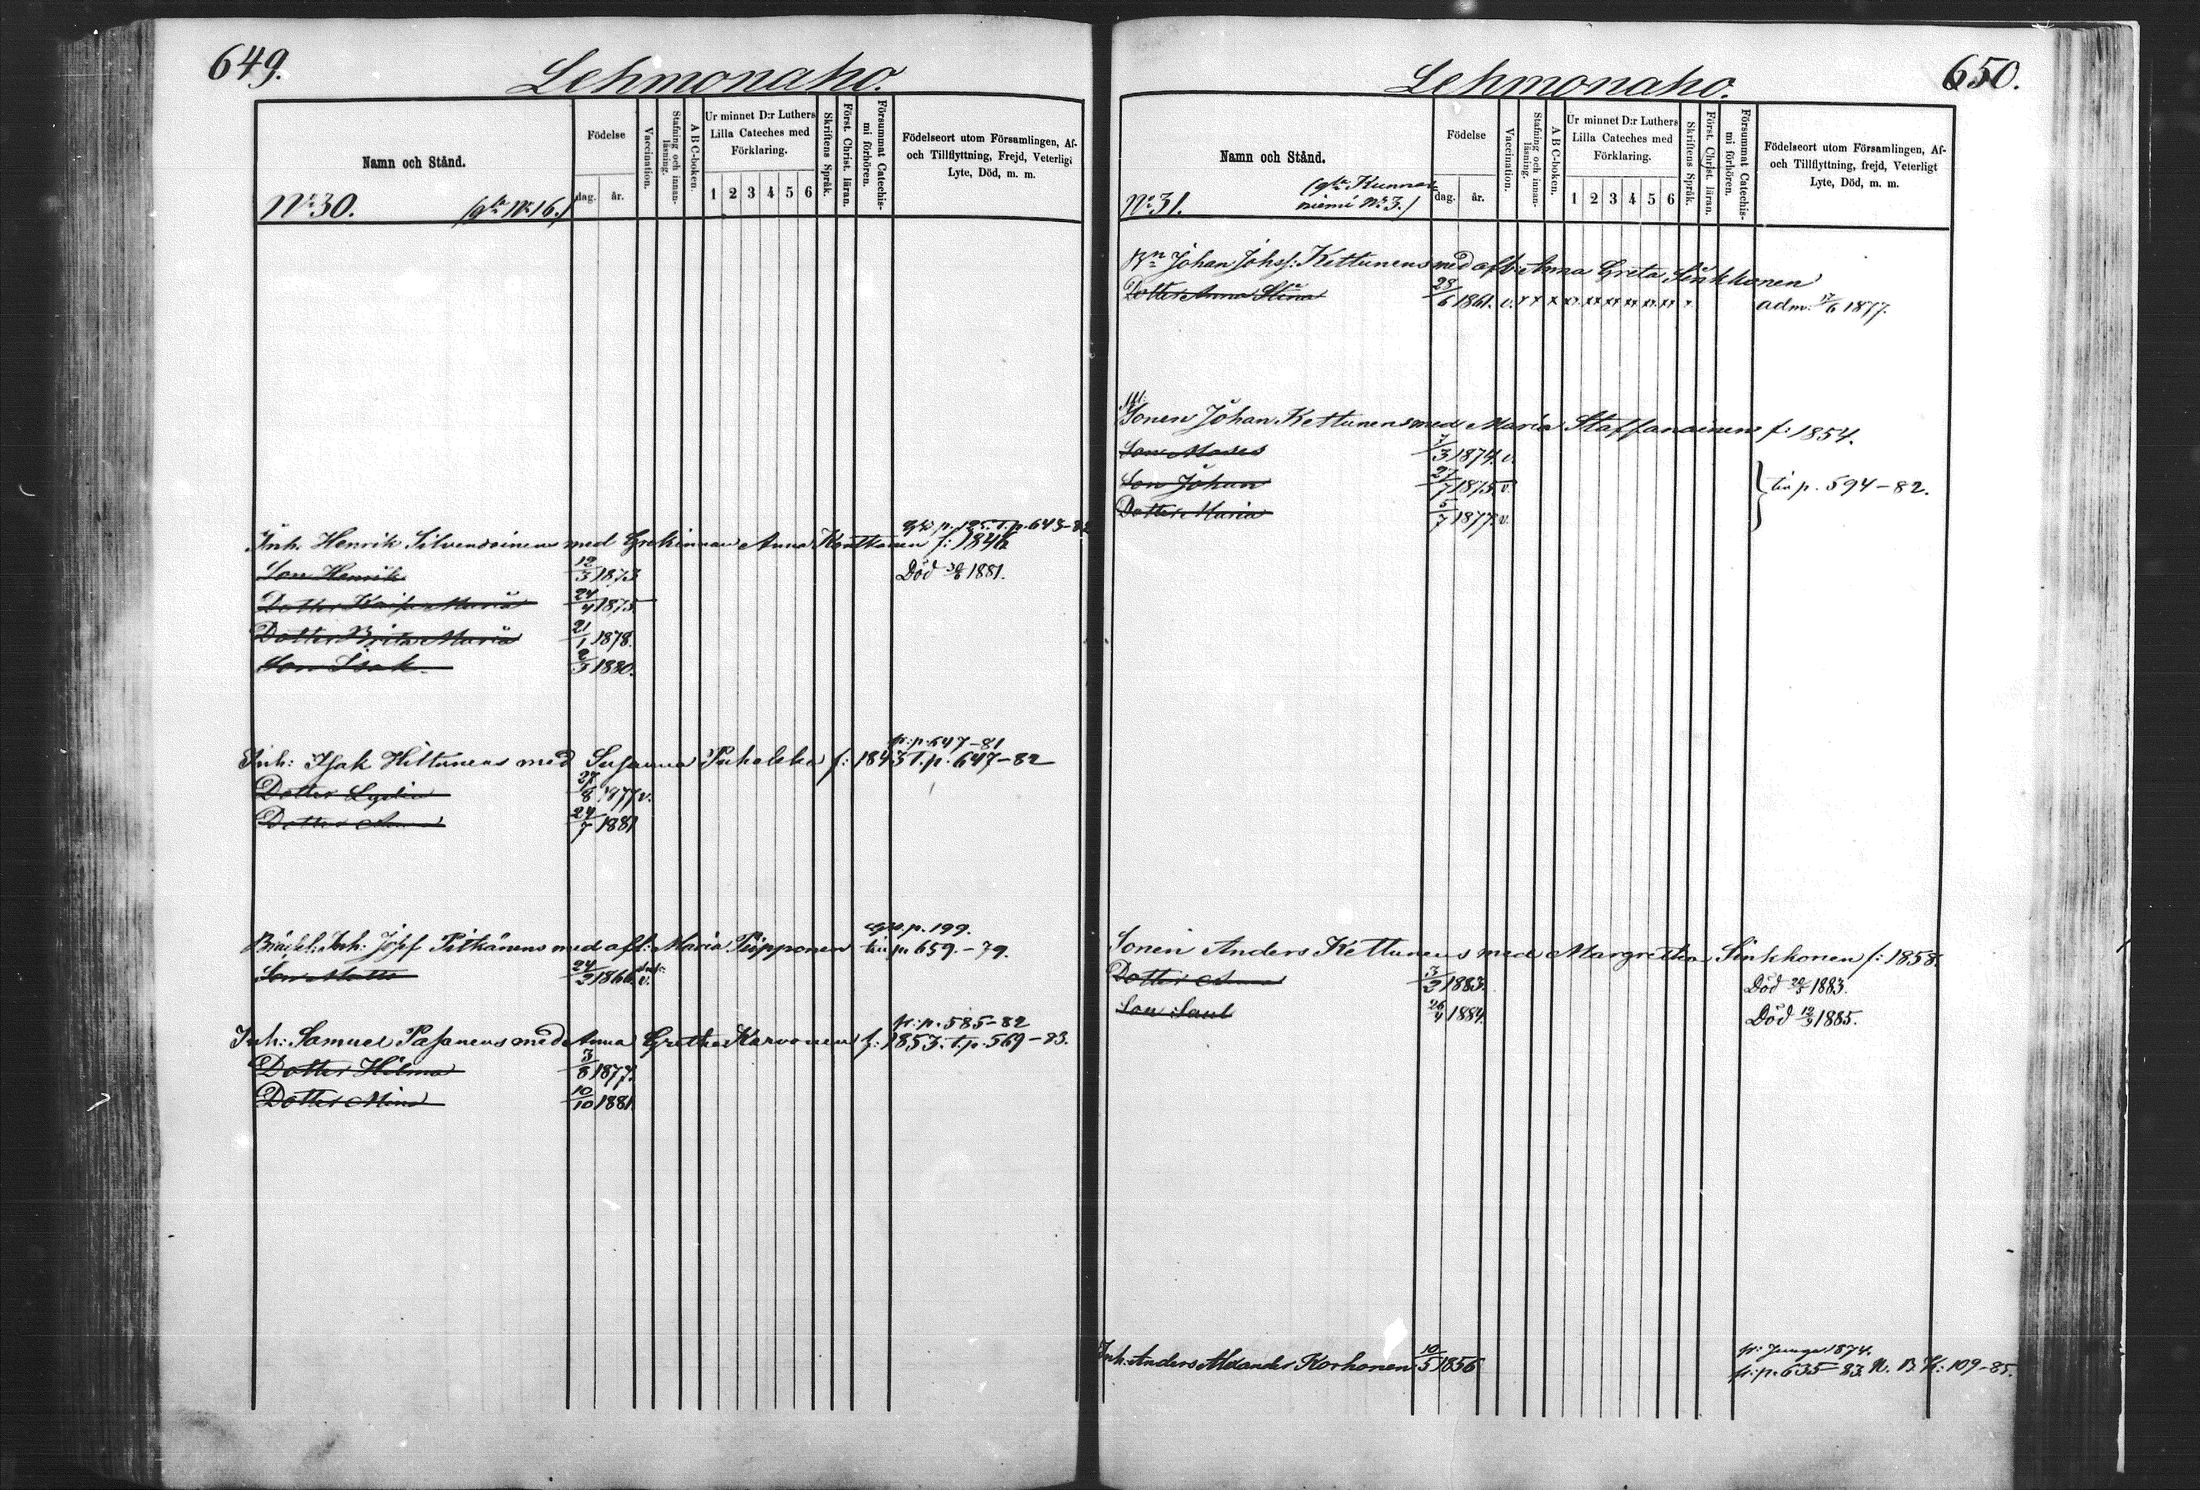 649.
Lehmonaho.
Namn och Stånd.
Födelse
dag. år.
Vaccination.
Stafning och innan-läsning.
A B C-boken.
Ur minnet D:r Luthers Lilla Cateches med Förklaring.
1 2 3 4 5 6
Skriftens Språk.
Först. Christ. läran.
Försummat Catechis-mi förhören.
Födelseort utom Församlingen, Af- och Tillflyttning, Frejd, Veterligt Lyte, Död, m. m.
No 30. (gla No 16.)
p. 125. T. p. 643-82
Inh. Henrik Silvendoinens med Enkinnan Anna Kontkanen f: 1846
Son Henrik 12/3 1873 Död 30/6 1881.
Dotter Kaisa Maria 24/4 1875
Dotter Brita Maria 21/1 1878.
Son Isak 2/3 1880.
fr: p. 647-81
Inh: Isak Hiltunens med Susanna Puhakka f: 1843 T. p. 647-82
Dotter Lydia 27/8 1877 v.
Dotter Anna 24/7 1881
p. 199.
Inh: Jósf Pitkänens med afl: Maria Piipponen tin p. 659.-79.
Son Matts 24/2 1866. v.
fr: p. 585-82
Inh: Samuel Pasanens med Anna Gretha Karvonen f: 1853. T. p. 569-83.
Dotter Hilma 3/8 1877.
Dotter Mina 10/10 1881.
650.
Lehmonaho.
Namn och Stånd.
Födelse
dag. år.
Vaccination.
Stafning och innan-läsning.
A B C-boken.
Ur minnet D:r Luthers Lilla Cateches med Förklaring.
1 2 3 4 5 6
Skriftens Språk.
Först. Christ. läran.
Försummat Catechis-mi förhören.
Födelseort utom Församlingen, Af- och Tillflyttning, frejd, Veterligt Lyte, Död, m. m.
No 31. (gla Kunnasniemi No 3.)
Bn Johan Johss: Kettunens med afl: Anna Greta Sinkkonen
Dotter Anna Stina 23/6 1861. v. adm: 17/6 1877.
Sonen Johan Kettunens med Maria Staffanainen f: 1854.
Son Moses 7/3 1874. v.
Son Johan 27/7 1875. v. tin p. 594-82.
Dotter Maria 5/7 1877. v.
Sonen Anders Kettunens med Margretha Sinkkonen f: 1858.
Dotter Anna 3/2 1883. Död 20/3 1883.
Son Saul 26/4 1884. Död 12/3 1885.
fr: 1874.
Inh: Anders Alexander Korhonen 10/5 1856 fr: p. 635-83. U. B. K: 109-85.